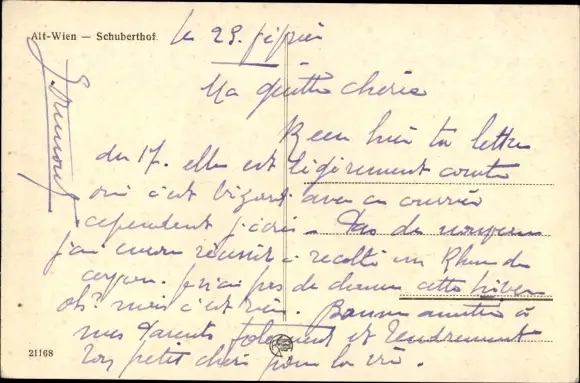 Alt-Wien — Schuberthof.
le 25. février
Ma petite chérie
Reçu hier ta lettre
du 17. elle est légèrement courte
oui c'est bizarre avec ce courrier
cependant j'écris. Pas de nouveau
j'ai encore réussir à récolté un Rhume de
cerveau. je n'ai pas de chance cette hiver
oh? mais c'est rien. Bonne amitié à
mes Parents follement et tendrement
Ton petit chéri pour la vie.
21168